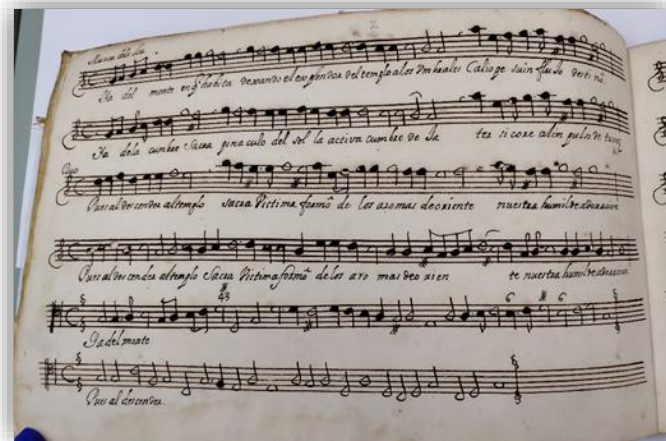 2
Musica del
Ya del monte en q̃ habita dexando el explendor del templo a los Vmbrales Caliope su influxo destina
Ya dela cumbre Sacra pinaculo del sol la activa cumbre de Ja ter si core al impulso de
Duo
Pues al descender al templo sacra Victima formõ de los aromas de oriente nuestra humilde adoracion
Pues al descender al templo Sacra Victima formõ de los aro mas deo rien te nuestra humilde adoracion
43
6 6
Ya del monte
Pues al descender.